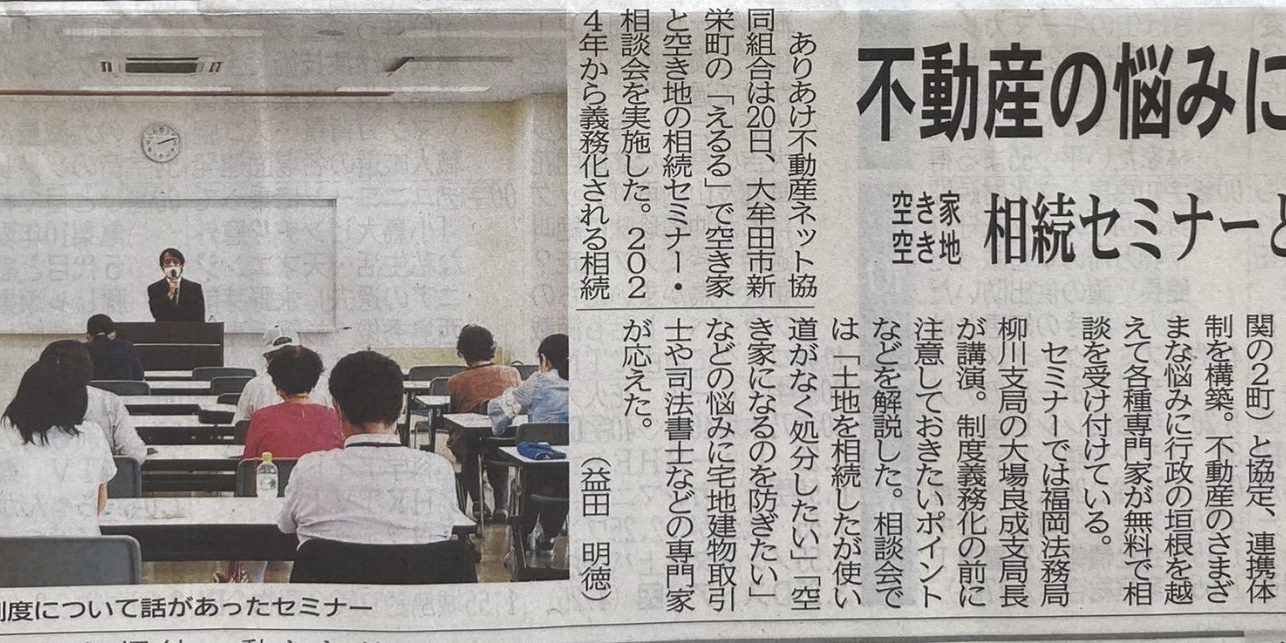 不動産の悩みに
空き家
空き地
相続セミナーと
ありあけ不動産ネット協
同組合は20日、大牟田市新
栄町の「えるる」で空き家
と空き地の相続セミナー・
相談会を実施した。202
4年から義務化される相続
関の2町)と協定、連携体
制を構築。不動産のさまざ
まな悩みに行政の垣根を越
えて各種専門家が無料で相
談を受け付けている。
セミナーでは福岡法務局
柳川支局の大場良成支局長
が講演。制度義務化の前に
注意しておきたいポイント
などを解説した。相談会で
は「土地を相続したが使い
道がなく処分したい」「空
き家になるのを防ぎたい」
などの悩みに宅地建物取引
士や司法書士などの専門家
が応えた。
(益田 明徳)
制度について話があったセミナー